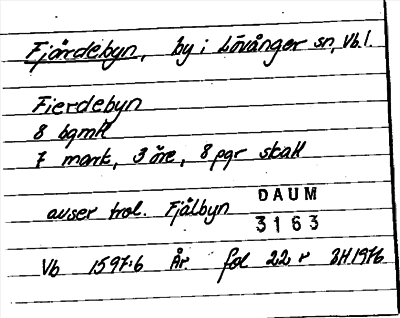 Fjärdebyn, by i Lövånger sn, Vb.l.
Fierdebyn
8 bgmH
7 mark, 3 öre, 8 pgr skatt
avser trol. Fjälbyn
DAUM
3163
Vb 1597:6 År. fol 22 r BH 1976